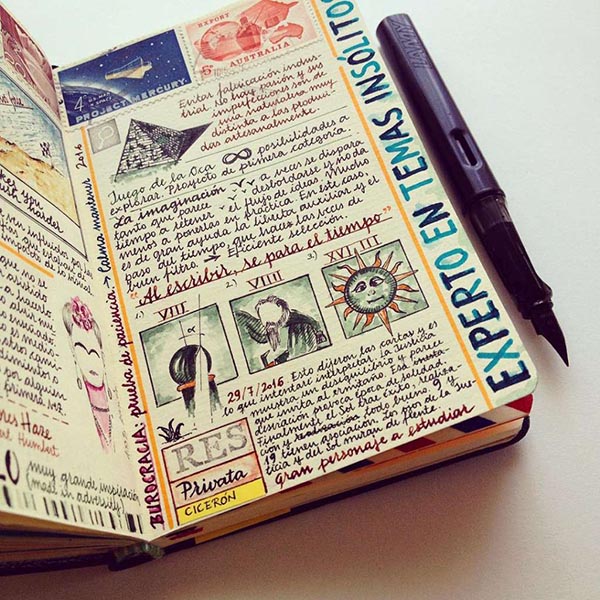 4¢
PROJECT MERCURY
EXPORT
5
AUSTRALIA
Evitar fabricación indus-
trial. No hay pasión y sus
imperfecciones son de
una naturaleza muy
distinta a las produci-
das artesanalmente.
Juego de la Oca ∞ posibilidades a
explorar. Proyecto de primera categoría.
La imaginación a veces se dispara
tanto que parece desbordarse y no da
tiempo a retener el flujo de ideas, mucho
menos a ponerlas en práctica. En este caso,
es de gran ayuda la libreta auxiliar y el
paso del tiempo, que hacen las veces de
buen filtro → Eficiente selección.
"Al escribir, se para el tiempo"
1) VIII
2) VIIII
3) XVIIII
29/7/2016 Esto dijeron las cartas y es
lo que intentaré interpretar. La justicia
muestra un desequilibrio y parece
que invita al ermitaño. Esa
provoca época de soledad.
Finalmente el Sol trae éxito, realiza-
ción y todo bueno. 9 y
19 tienen asociación.
y el Sol miran de frente
gran personaje a estudiar
RES
Privata
CICERÓN
EXPERTO EN TEMAS INSÓLITOS
BUROCRACIA: prueba de paciencia → Calma mantener 2016
muy grande inspiración
(mad in adversity)
LAMY